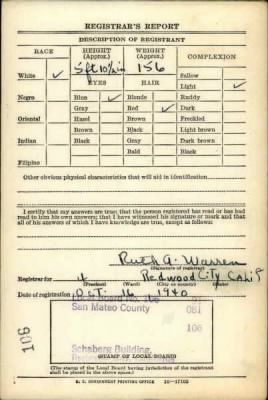 REGISTRAR'S REPORT
DESCRIPTION OF REGISTRANT
RACE HEIGHT (Approx.) WEIGHT (Approx.) COMPLEXION
5 ft 10½in 156
White ✓ EYES HAIR Sallow
Light ✓
Negro Blue ✓ Blonde Ruddy
Gray Red ✓ Dark
Oriental Hazel Brown Freckled
Brown Black Light brown
Indian Black Gray Dark brown
Bald Black
Filipino
Other obvious physical characteristics that will aid in identification
I certify that my answers are true; that the person registered has read or has had read to him his own answers; that I have witnessed his signature or mark and that all of his answers of which I have knowledge are true, except as follows:
Ruth A. Warren
(Signature of registrar)
Registrar for 4 Redwood City Calif
(Precinct) (Ward) (City or county) (State)
Date of registration Oct. 16 1940
Local Board No. 106
San Mateo County 081
106
Schaberg Building,
STAMP OF LOCAL BOARD
(The stamp of the Local Board having jurisdiction of the registrant shall be placed in the above space.)
U. S. GOVERNMENT PRINTING OFFICE 16—17105
106